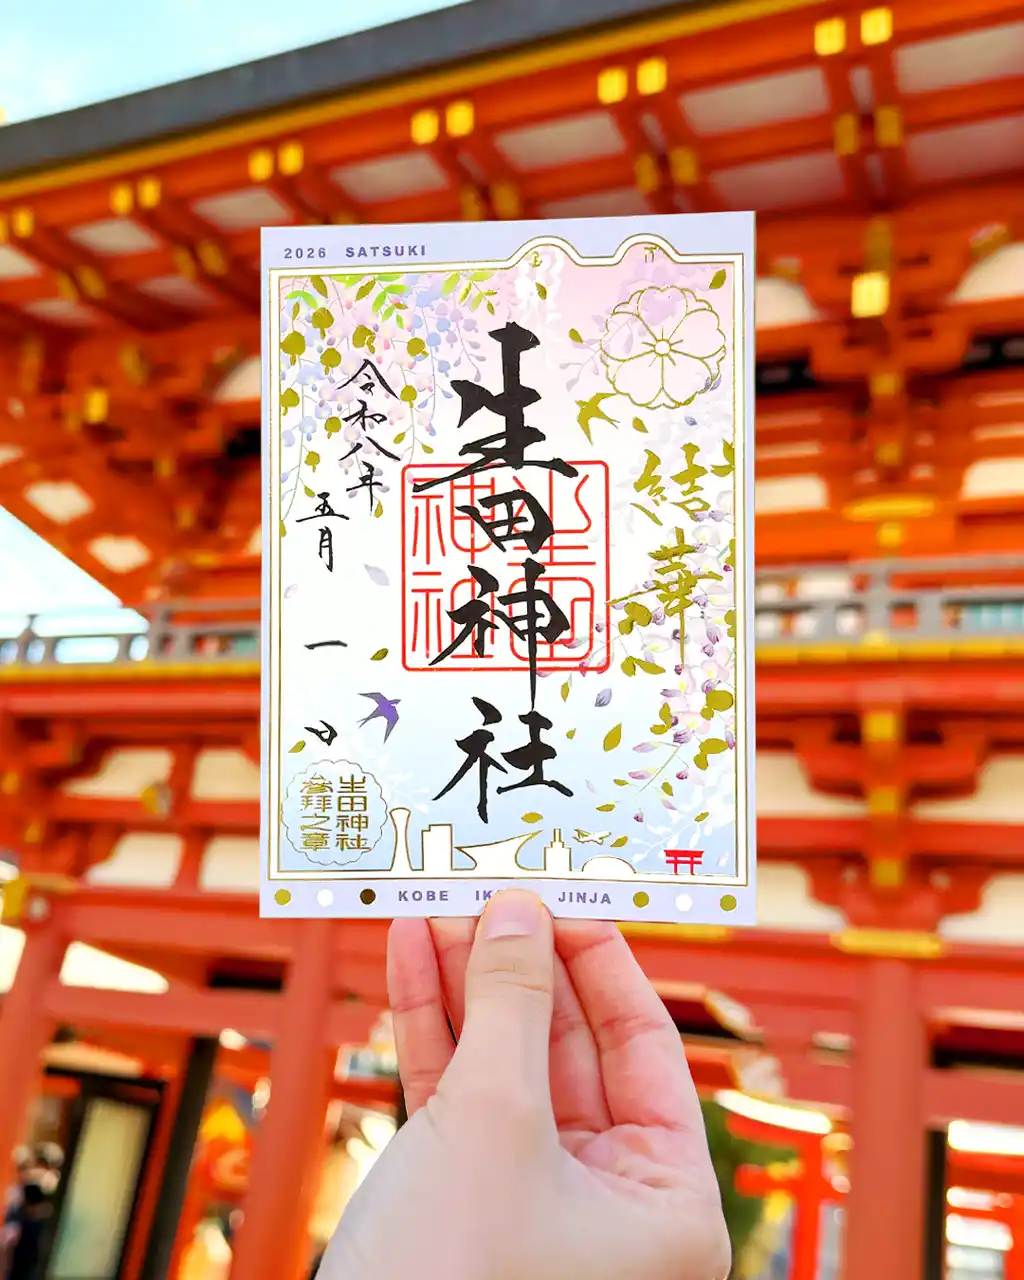 2026 SATSUKI
結華
生田神社
生田神社
令和八年
五月一日
生田神社
参拝之章
KOBE IK JINJA